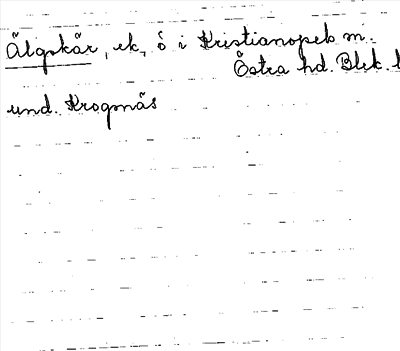 Älgskär, ek, ö i Kristianopels m.
Östra hd. Blek. l
und. Krogsnäs